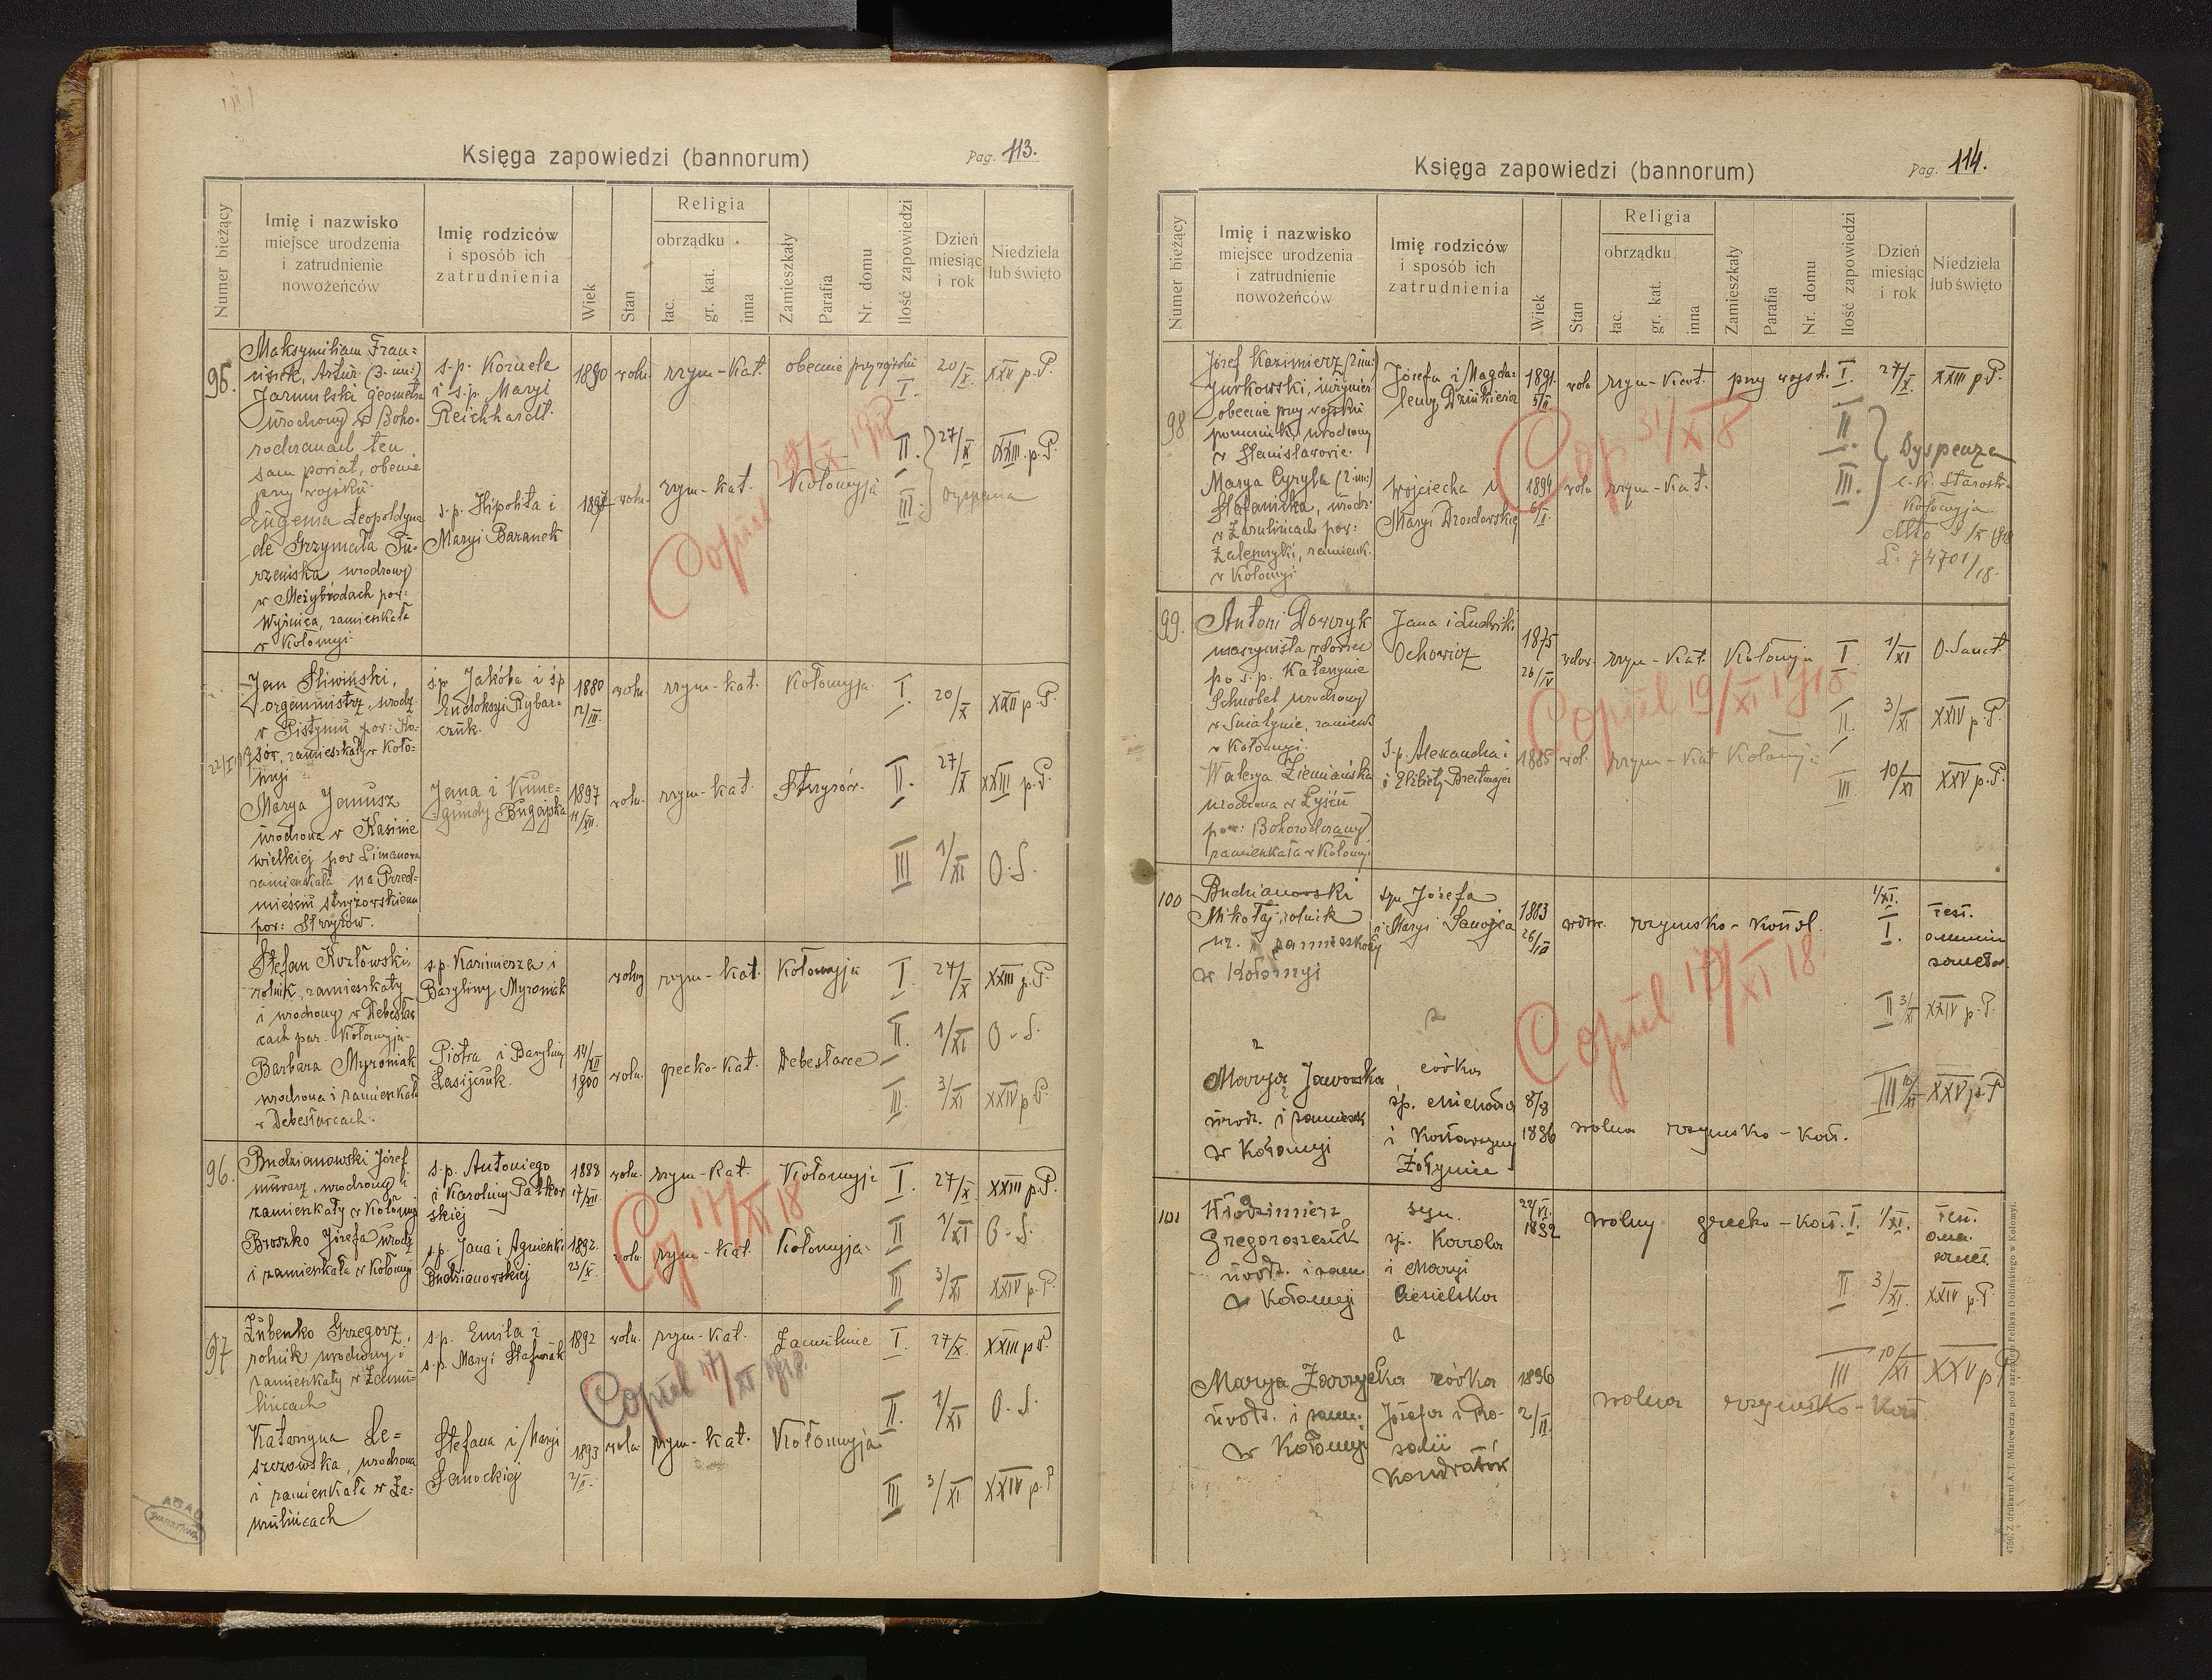 Księga zapowiedzi (bannorum)
Pag. 113.
Numer bieżący
Imię i nazwisko
miejsce urodzenia
i zatrudnienie
nowożeńców
Imię rodziców
i sposób ich
zatrudnienia
Wiek
Stan
Religia
obrządku
łac.
gr. kat.
inna
Zamieszkały
Parafia
Nr. domu
Ilość zapowiedzi
Dzień
miesiąc
i rok
Niedziela
lub święto
95.
Maksymilian Fran=
ciszek, Artur (3. im:)
Jarmulski geometra
urodzony w Boho-
rodczanach ten
sam powiat, obecnie
przy wojsku
s.p. Kornela
i s.p. Maryi
Reichhardt.
1890 woln. rzym-kat. obecnie przy wojsku I. 20/X. XXII p. P.
II. 27/X XXIII. p. P.
III. dyspensa
Eugenia Leopoldyna
de Grzymała Tu-
rzańska, urodzony
w Meżybrodach pow:
Wyżnica, zamieszkała
w Kołomyi.
s.p. Hipolita i
Maryi Baranek
1897 woln. rzym-kat. Kołomyja
Copul
Jan Śliwiński,
organmistrz, urodz.
w Pistyniu pow: Ko-
sów, zamieszkały w Koło-
myi
s.p. Jakóba i s.p.
Eudoksyi Rybar-
czuk.
1880
12/III.
woln. rzym-kat. Kołomyja. I. 20/X XXII p. P.
Marya Janusz
urodzona w Kasinie
wielkiej pow Limanowa
zamieszkała na Przed-
mieściu strzyżowskiem
pow: Strzyżów.
Jana i Kune-
gundy Bugajska
1897
11/XII.
woln. rzym-kat. Strzyżów. II. 27/X XXIII p. P.
III 1/XI O. S.
Stefan Kozłowski,
rolnik, zamieszkały
i urodzony w Debesław
cach par. Kołomyja.
s.p. Kazimierza i
Baryliny Myroniak
wolny rzym-kat. Kołomyja I. 27/X XXIII p. P.
II. 1/XI O. S.
Barbara Myroniak
urodzona i zamieszkała
w Debesławcach.
Piotra i Baryliny
Łasijczuk.
14/XII
1900
woln. grecko-kat. Debesławce
III. 3/XI XXIV p P.
96.
Budzianowski Józef
murarz, urodzony i
zamieszkały w Kołomyi
s.p. Antoniego
i Karoliny Patkow
skiej
1888
17/XII.
woln. rzym-kat. Kołomyja I. 27/X. XXIII p. P.
II 1/XI O. S.
Broszko Józefa urodz
i zamieszkała w Kołomyi
s.p. Jana i Agnieszki
Budzianowskiej
1892.
25/X.
woln. rzym-kat. Kołomyja.
III 3/XI XXIV p. P.
Cop 17/XI 18
97
Żubenko Grzegorz,
rolnik urodzony i
zamieszkały w Zamu-
lińcach
s.p. Emila i
s.p. Maryi Stafurak
1892 woln. rzym-kat. Zamulince I. 27/X. XXIII p P.
II. 1/XI O. S.
Katarzyna Le=
szczowska, urodzona
i zamieszkała w Za-
mulińcach
Stefana i Maryi
Sanockiej
1893
2/II.
woln. rzym-kat. Kołomyja
III 3/XI XXIV p. P
Copul 17/XI 1918.
AGAD
WARSZAWA
Księga zapowiedzi (bannorum)
Pag. 114.
Numer bieżący
Imię i nazwisko
miejsce urodzenia
i zatrudnienie
nowożeńców
Imię rodziców
i sposób ich
zatrudnienia
Wiek
Stan
Religia
obrządku
łac.
gr. kat.
inna
Zamieszkały
Parafia
Nr. domu
Ilość zapowiedzi
Dzień
miesiąc
i rok
Niedziela
lub święto
98
Józef Kazimierz (2 im:)
Jurkowski, inżynier
obecnie przy wojsku
porucznik, urodzony
w Stanisławowie.
Józefa i Magda-
leny Dzińkiewicz
1891.
5/II.
woln rzym-kat. przy wojsk. I. 27/X. XXIII p. P.
II.
III.
Dyspenza
c. k. Starostwa
Kołomyja
L. 74701/18.
Marya Cyryla (2 im:)
Stefanicka, urodz.
w Zasulińcach pow:
Zaleszczyki, zamieszk.
w Kołomyi
Wojciecha i
Maryi Drozdowskiej
1894
woln rzym-kat.
Cop 31/X 8
99.
Antoni Dawczyk
maszynista wdowiec
po s.p. Katarzynie
Schnobel urodzony
w Śniatynie, zamieszk
w Kołomyi.
Jana i Ludwiki
Ochowicz
1875
26/IV
wdow. rzym-kat. Kołomyja I 1/XI O. Sanct.
II. 3/XI XXIV p. P.
Walerya Ziemiańska
urodzona w Łyścu
pow: Bohorodczany
zamieszkała w Kołomyi
S.p. Alexandra i
i Elżbiety Breitmajer
1885 wol. rzym-kat Kołomyja
III. 10/XI XXV p. P.
Copul 19/XI 1918.
100
Budzianowski
Mikołaj, rolnik
ur. i zamieszkały
w Kołomyi
syn Józefa
i Maryi Sanojca
1883
wdow. rzymsko-katol. 1/XI.
I. fest.
omnium
sanctor.
II 3/XI XXIV p. P.
z
Marya Jaworska
urodz. i zamieszk
w Kołomyi
córka
sp. Michała
i Katarzyny
Żołynia
1886 wolna rzymsko-kat.
III 10/XI XXV p. P
Copul 17/XI 18.
101
Włodzimierz
Gregoraszczuk
urodz. i zam.
w Kołomyi
syn.
sp. Karola
i Maryi
Ciesielska
22/VI.
1892
wolny grecko-kat. I. 1/XI. fest.
omn.
sanct.
II. 3/XI. XXIV p. P
a
Marya Zarzycka
urodz. i zam.
w Kołomyi
córka
Józefa i Ro-
zalii
Kondratów
1896
2/II.
wolna rzymsko-kat
III 10/XI XXV p P
4750. Z drukarni A. J. Miziewicza pod zarządem Feliksa Dolińskiego w Kołomyi.